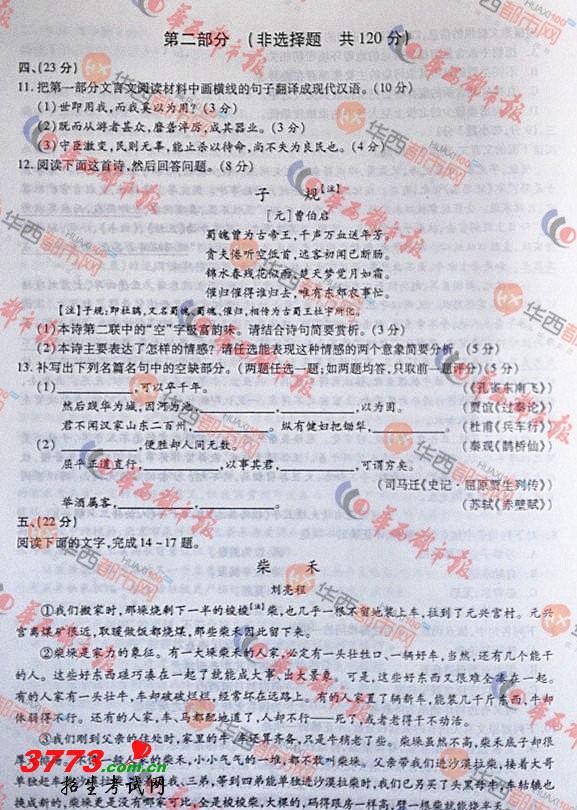 第二部分 (非选择题 共120分)
四、(23分)
11. 把第一部分文言文阅读材料中画横线的句子翻译成现代汉语。(10分)
(1)世即用我,而我奚以为用?(3分)
(2)既而从游者甚众,磨砻淬厉,成其器业。(3分)
(3)守臣激变,民则无辜,能止杀以待命,尚不失为良民也。(4分)
12. 阅读下面这首诗,然后回答问题。(8分)
子 规[注]
[元]曹伯启
蜀魄曾为古帝王,千声万血送年芳。
贪夫倦听空低首,远客初闻已断肠。
锦水春残花似雨,楚天梦觉月如霜。
催归催得谁归去,唯有东郊农事忙。
[注]子规:即杜鹃,又名蜀魄、蜀魂、催归,相传为古蜀王杜宇所化。
(1)本诗第二联中的“空”字极富韵味。请结合诗句简要赏析。(3分)
(2)本诗主要表达了怎样的情感?请任选能表现这种情感的两个意象简要分析。(5分)
13. 补写出下列名篇名句中的空缺部分。(两题任选一题;如两题均答,只取前一题评分)(5分)
(1) ,可以卒千年。 (《孔雀东南飞》)
然后践华为城,因河为池, , ,以为固。 (贾谊《过秦论》)
君不闻汉家山东二百州, 。纵有健妇把锄犁, 。 (杜甫《兵车行》)
(2) ,便胜却人间无数。 (秦观《鹊桥仙》)
屈平正道直行, ,以事其君, ,可谓穷矣。
(司马迁《史记·屈原贾生列传》)
举酒属客, , 。 (苏轼《赤壁赋》)
五、(22分)
阅读下面的文字,完成14~17题。
柴 禾
刘亮程
①我们搬家时,那垛烧剩下一半的梭梭[注]柴,也几乎一根不留地装上车,拉到了元兴宫村。元兴
宫离煤矿很近,取暖做饭都烧煤,那些柴禾因此留下来。
②柴垛是家力的象征。有一大垛柴禾的人家,必定有一头壮牲口、一辆好车,当然,还有几个能干
的人。这些好东西碰巧凑在一起了就能成大事、出大景象。可是,这些好东西又很难全凑在一起。
有的人家有一头壮牛,车却破破烂烂,经常坏在远路上。有的人家置了辆新车,能装几千斤东西,牛却
体弱得不行。还有的人家,车、马都配地道了,人却不行——死了,或者老得干不动活。
③我们刚到父亲的住处时,家里的牛、车还算齐备,只是牛稍老了些。柴垛虽然不高,柴禾底子却很
厚 。不 的柴禾,小小气气的一堆,都不敢叫柴垛。父亲带我们进沙漠拉柴,接着大哥
单独赶车 我、三弟,等到四弟能单独进沙漠拉柴时,我们已另买了头黑母牛,车轱辘也
换成新的,柴垛更是没有哪家可比,全是梭梭柴,大棵的,码得跟房一样高,劈一根柴就能烧
3773.com.cn
招生考试网
华西都市报
华西都市网
HUAXI100.COM